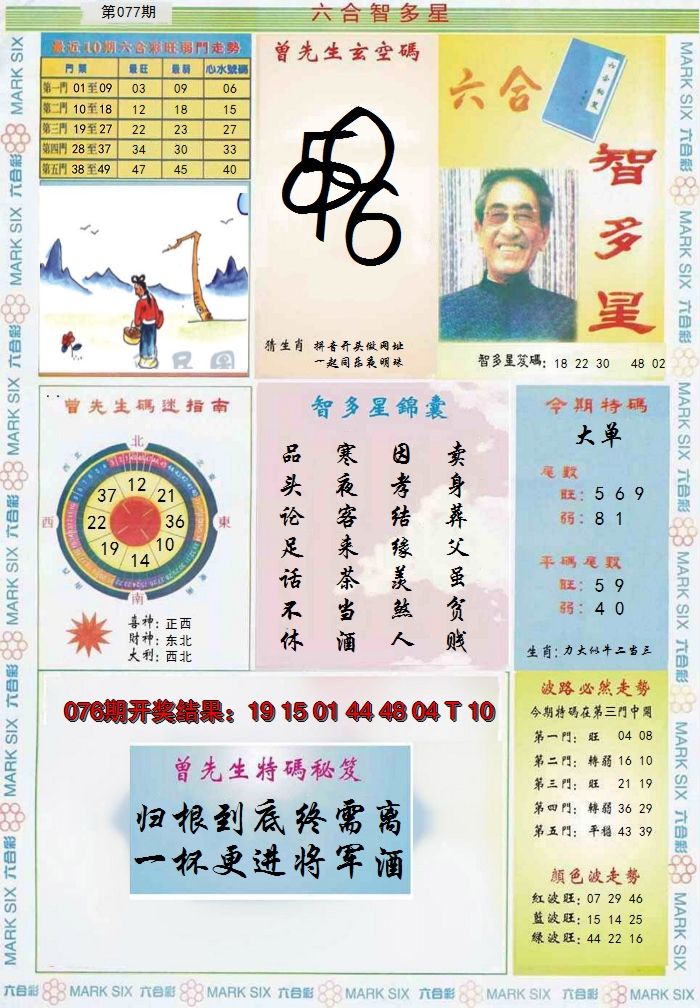 第077期
六合智多星
最近10期六合彩旺弱門走勢
門票 最旺 最弱 心水號碼
第一門 01至09 03 09 06
第二門 10至18 12 18 15
第三門 19至27 22 23 27
第四門 28至37 34 30 33
第五門 38至49 47 45 40
曾先生玄空碼
猜生肖 拼音开头做网址
一起同乐夜明珠
六合
智多星
智多星笈碼: 18 22 30 48 02
曾先生碼迷指南
北
西
東
南
12
21
36
10
14
19
22
37
喜神: 正西
財神: 东北
大利: 西北
智多星錦囊
卖身葬父虽贫贱
因孝结缘羡煞人
寒夜客来茶当酒
品头论足话不休
今期特碼
大单
尾數
旺: 5 6 9
弱: 8 1
平碼尾數
旺: 5 9
弱: 4 0
生肖: 力大似牛二当三
076期开奖结果：19 15 01 44 48 04 T 10
曾先生特碼秘笈
归根到底终需离
一杯更进将军酒
波路必然走勢
今期特碼在第三門中開
第一門: 旺 04 08
第二門: 轉弱 16 10
第三門: 旺 21 19
第四門: 轉弱 36 29
第五門: 平穩 43 39
顏色波走勢
紅波旺: 07 29 46
藍波旺: 15 14 25
綠波旺: 44 22 16
六合彩 MARK SIX 六合彩 MARK SIX 六合彩 MARK SIX 六合彩 MARK SIX 六合彩